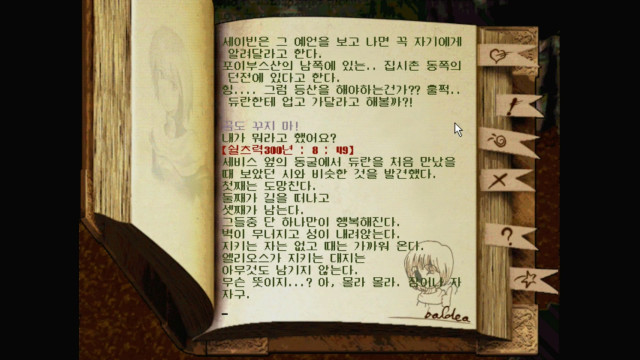 세이빈은 그 예언을 보고 나면 꼭 자기에게
알려달라고 한다.
포이부스산의 남쪽에 있는.. 집시촌 동쪽의
던전에 있다고 한다.
힝.... 그럼 등산을 해야하는건가?? 훌쩍..
듀란한테 업고 가달라고 해볼까?!
꿈도 꾸지 마!
내가 뭐라고 했어요?
【쉴츠력300년 : 8 : 49】
세비스 옆의 동굴에서 듀란을 처음 만났을
때 보았던 시와 비슷한 것을 발견했다.
첫째는 도망친다.
둘째가 길을 떠나고
셋째가 남는다.
그들중 단 하나만이 행복해진다.
벽이 무너지고 성이 내려앉는다.
지키는 자는 없고 때는 가까워 온다.
엘리오스가 지키는 대지는
아무것도 남기지 않는다.
무슨 뜻이지...? 아, 몰라 몰라. 잠이나 자
자구.
baldea